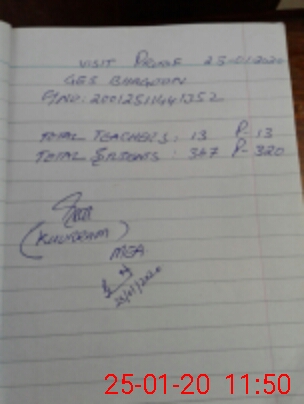 VISIT PROOF 25-01-2020
GES BHAGOON
A/NO: 20012511441352
TOTAL TEACHERS: 13 P-13
TOTAL STUDENTS: 367 P-320
(KHURRAM)
MEA.
25/01/2020
25-01-20 11:50